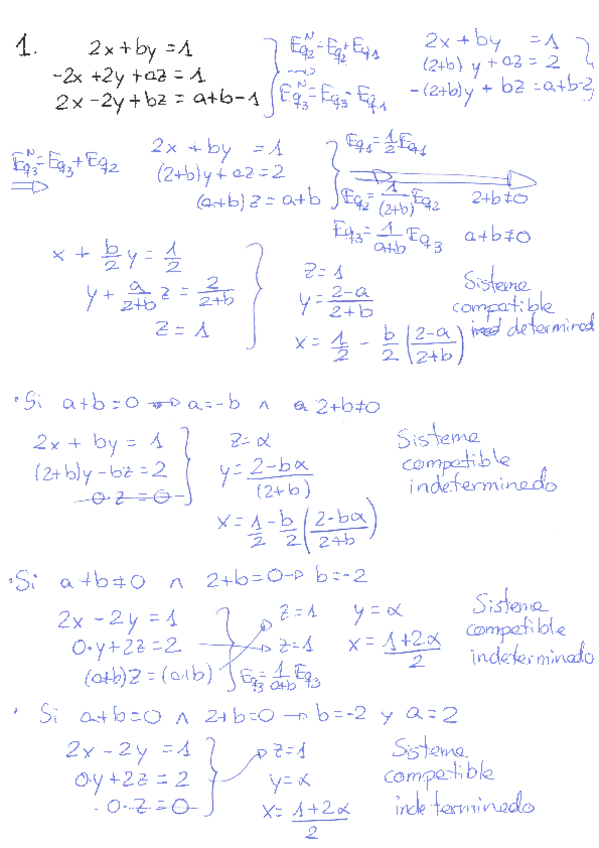 1. 2x + by = 1
-2x + 2y + az = 1
2x - 2y + bz = a+b-1
Eq₂ᴺ = Eq₂ + Eq₁
Eq₃ᴺ = Eq₃ - Eq₁
2x + by = 1
(2+b) y + az = 2
-(2+b)y + bz = a+b-2
Eq₃ᴺ = Eq₃ + Eq₂
2x + by = 1
(2+b)y + az = 2
(a+b) z = a+b
Eq₁ = 1/2 Eq₁
Eq₂ = 1/(2+b) Eq₂ 2+b≠0
Eq₃ = 1/(a+b) Eq₃ a+b≠0
x + b/2 y = 1/2
y + a/(2+b) z = 2/(2+b)
z = 1
z = 1
y = (2-a)/(2+b)
x = 1/2 - b/2 ((2-a)/(2+b))
Sistema
compatible
determinad
· Si a+b=0 → a=-b ∧ 2+b≠0
2x + by = 1
(2+b)y - bz = 2
0·z = 0
z = α
y = (2-bα)/(2+b)
x = 1/2 - b/2 ((2-bα)/(2+b))
Sistema
compatible
indeterminado
· Si a+b≠0 ∧ 2+b=0 → b=-2
2x - 2y = 1
0·y + 2z = 2
(a+b)z = (a+b)
Eq₃ = 1/(a+b) Eq₃
z = 1
z = 1
y = α
x = (1+2α)/2
Sistema
compatible
indeterminado
· Si a+b=0 ∧ 2+b=0 → b=-2 y a=2
2x - 2y = 1
0·y + 2z = 2
0·z = 0
z = 1
y = α
x = (1+2α)/2
Sistema
compatible
indeterminado